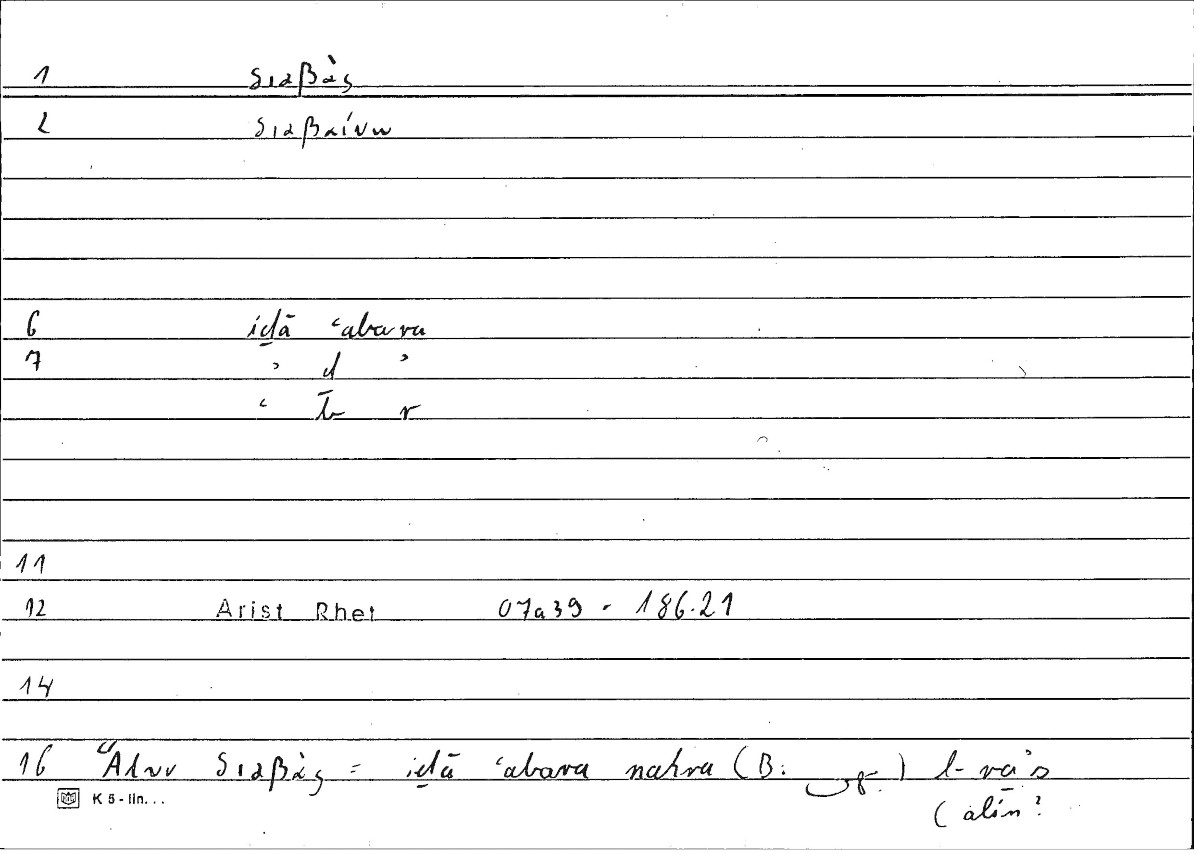 1 διαβὰς
2 διαβαίνω
6 iḏā ʿabara
7 ʾ ḏ ʾ
ʿ b r
11
12 Arist Rhet 07a39 - 186.21
14
16 Ἅλυν διαβὰς = iḏā ʿabara nahra (B: ) l-raʾs
(alīn?
K 5 - lin. . .